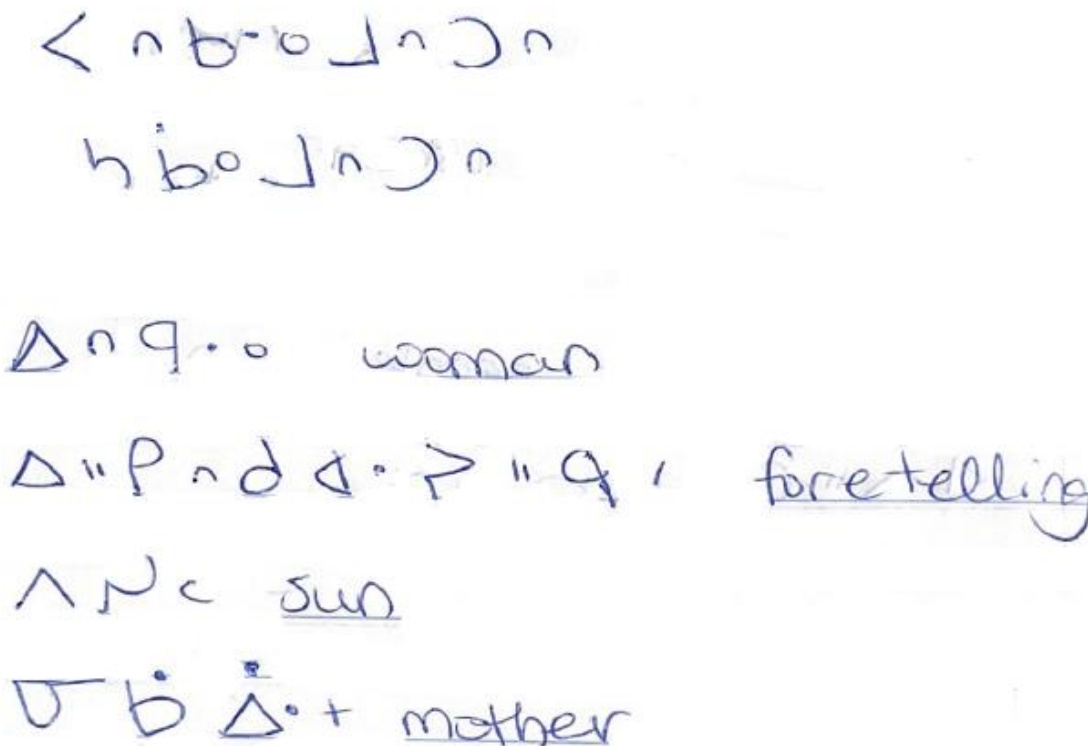 ᐸᐢᑲᐧᐤᒧᐢᑐᐢ
ᓴᑳᐤᒧᐢᑐᐢ
ᐃᐢᑫᐧᐤ woman
ᐃᐦᑭᐢᑯᐊᐧᐳᐦᑫᐟ foretelling
ᐱᓯᒼ sun
ᓂᑳᐄᐧᐩ mother